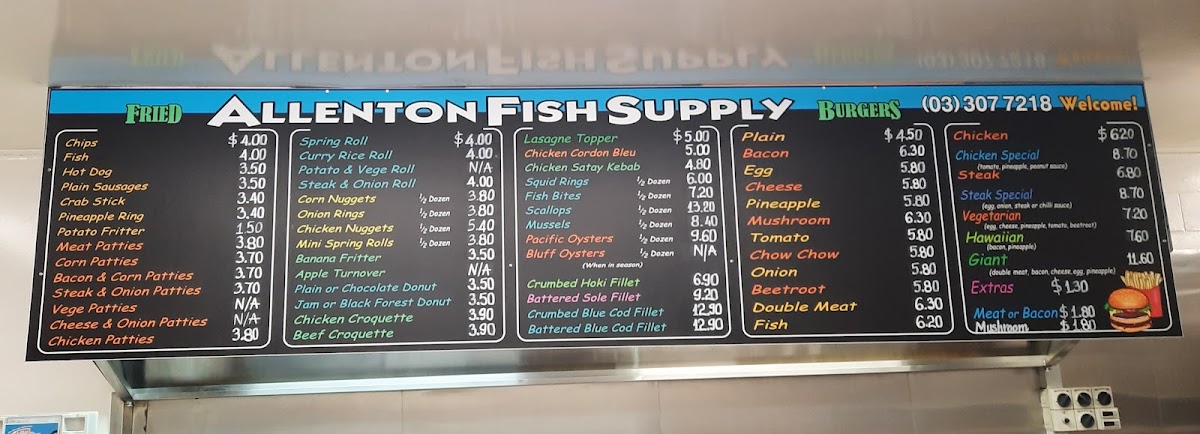 FRIED ALLENTON FISH SUPPLY BURGERS (03) 307 7218 Welcome!
Chips $4.00
Fish 4.00
Hot Dog 3.50
Plain Sausages 3.50
Crab Stick 3.40
Pineapple Ring 3.40
Potato Fritter 1.50
Meat Patties 3.80
Corn Patties 3.70
Bacon & Corn Patties 3.70
Steak & Onion Patties 3.70
Vege Patties N/A
Cheese & Onion Patties N/A
Chicken Patties 3.80
Spring Roll $4.00
Curry Rice Roll 4.00
Potato & Vege Roll N/A
Steak & Onion Roll 4.00
Corn Nuggets ½ Dozen 3.80
Onion Rings ½ Dozen 3.80
Chicken Nuggets ½ Dozen 5.40
Mini Spring Rolls ½ Dozen 3.80
Banana Fritter 3.50
Apple Turnover N/A
Plain or Chocolate Donut 3.50
Jam or Black Forest Donut 3.50
Chicken Croquette 3.90
Beef Croquette 3.90
Lasagne Topper $5.00
Chicken Cordon Bleu 5.00
Chicken Satay Kebab 4.80
Squid Rings ½ Dozen 6.00
Fish Bites ½ Dozen 7.20
Scallops ½ Dozen 13.20
Mussels ½ Dozen 8.40
Pacific Oysters ½ Dozen 9.60
Bluff Oysters ½ Dozen N/A
(When in season)
Crumbed Hoki Fillet 6.90
Battered Sole Fillet 9.20
Crumbed Blue Cod Fillet 12.90
Battered Blue Cod Fillet 12.90
Plain $4.50
Bacon 6.30
Egg 5.80
Cheese 5.80
Pineapple 5.80
Mushroom 6.30
Tomato 5.80
Chow Chow 5.80
Onion 5.80
Beetroot 5.80
Double Meat 6.30
Fish 6.20
Chicken $6.20
Chicken Special 8.70
(tomato, pineapple, peanut sauce)
Steak 6.80
Steak Special 8.70
(egg, onion, steak or chilli sauce)
Vegetarian 7.20
(egg, cheese, pineapple, tomato, beetroot)
Hawaiian 7.60
(bacon, pineapple)
Giant 11.60
(double meat, bacon, cheese, egg, pineapple)
Extras $1.30
Meat or Bacon $1.80
Mushroom $1.80